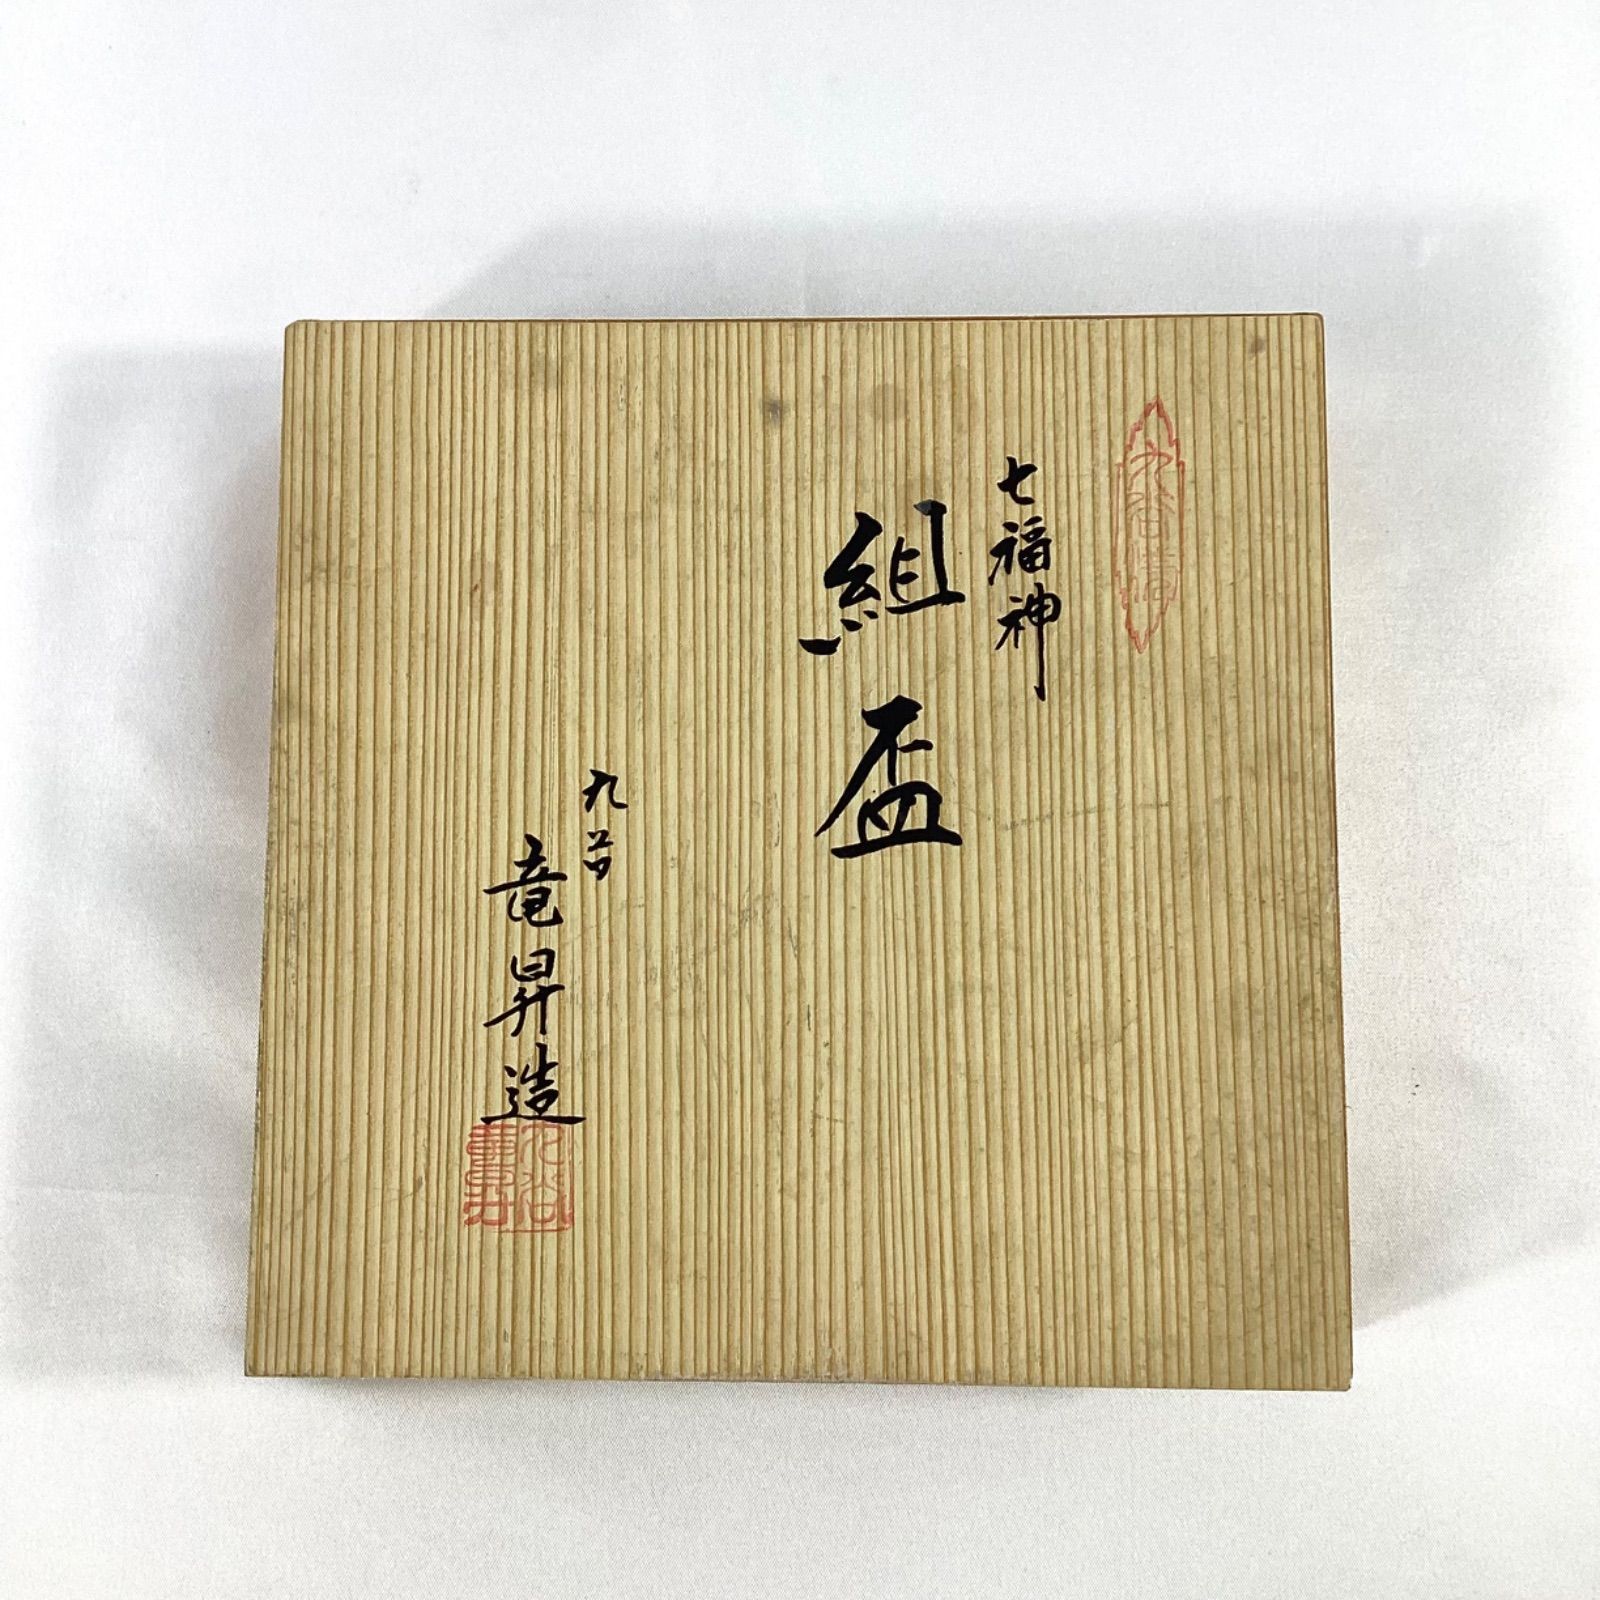 七福神
組盃
九谷
竜昇造